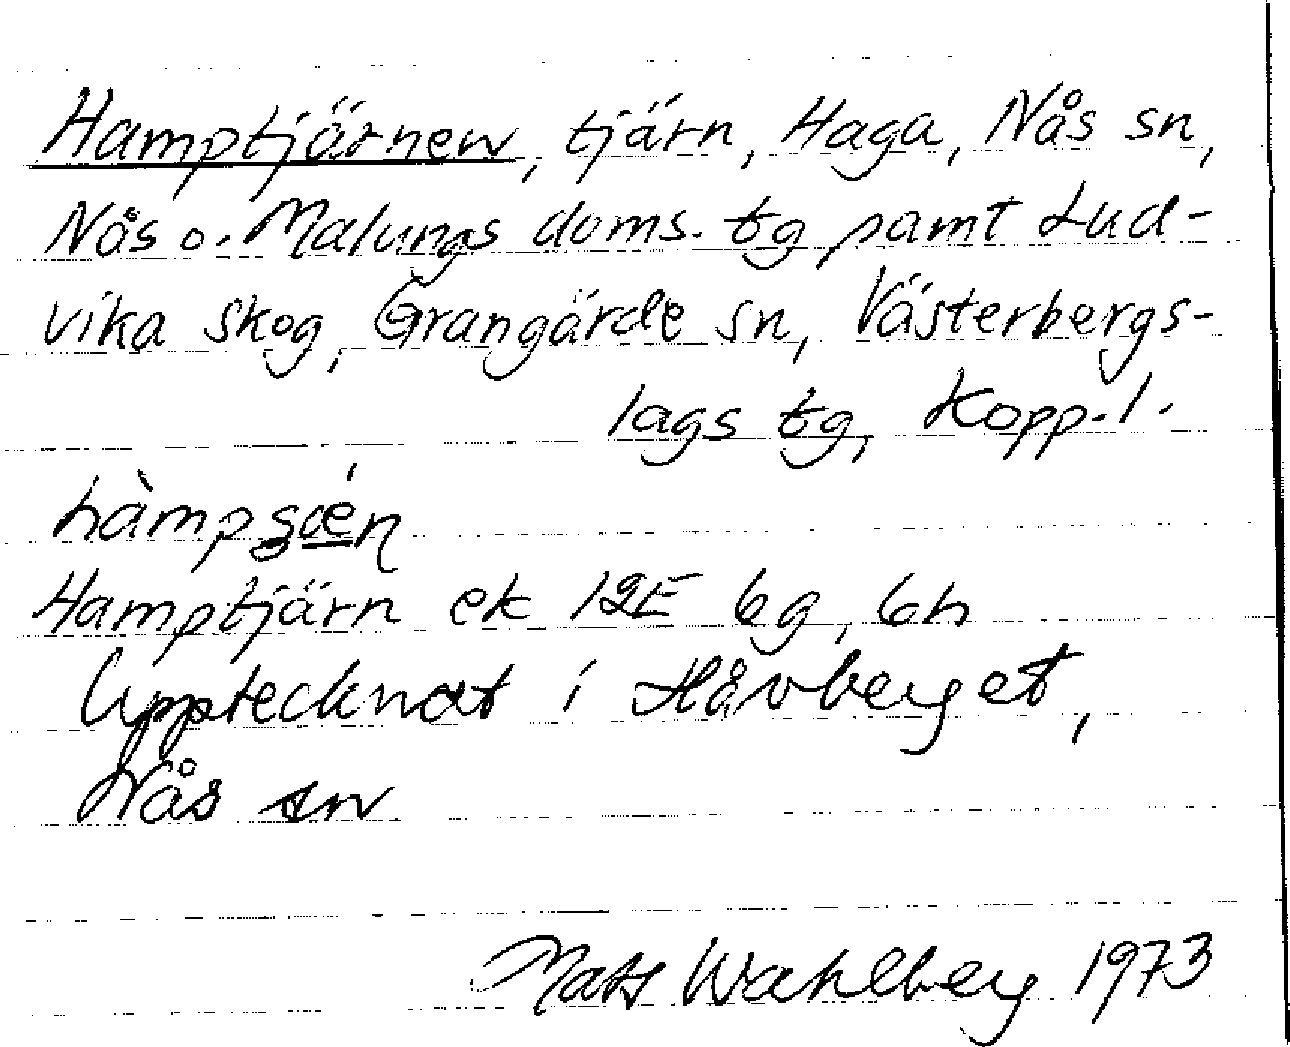 Hamptjärnen, tjärn, Haga, Nås sn,
Nås o. Malungs doms. tg samt Lud-
vika skog, Grangärde sn, Västerbergs-
lags tg, Kopp. l.
Hamptjärn ek 12E 6g, 6h
Upptecknat i Håvberget,
Nås sn
Mats Wahlberg 1973